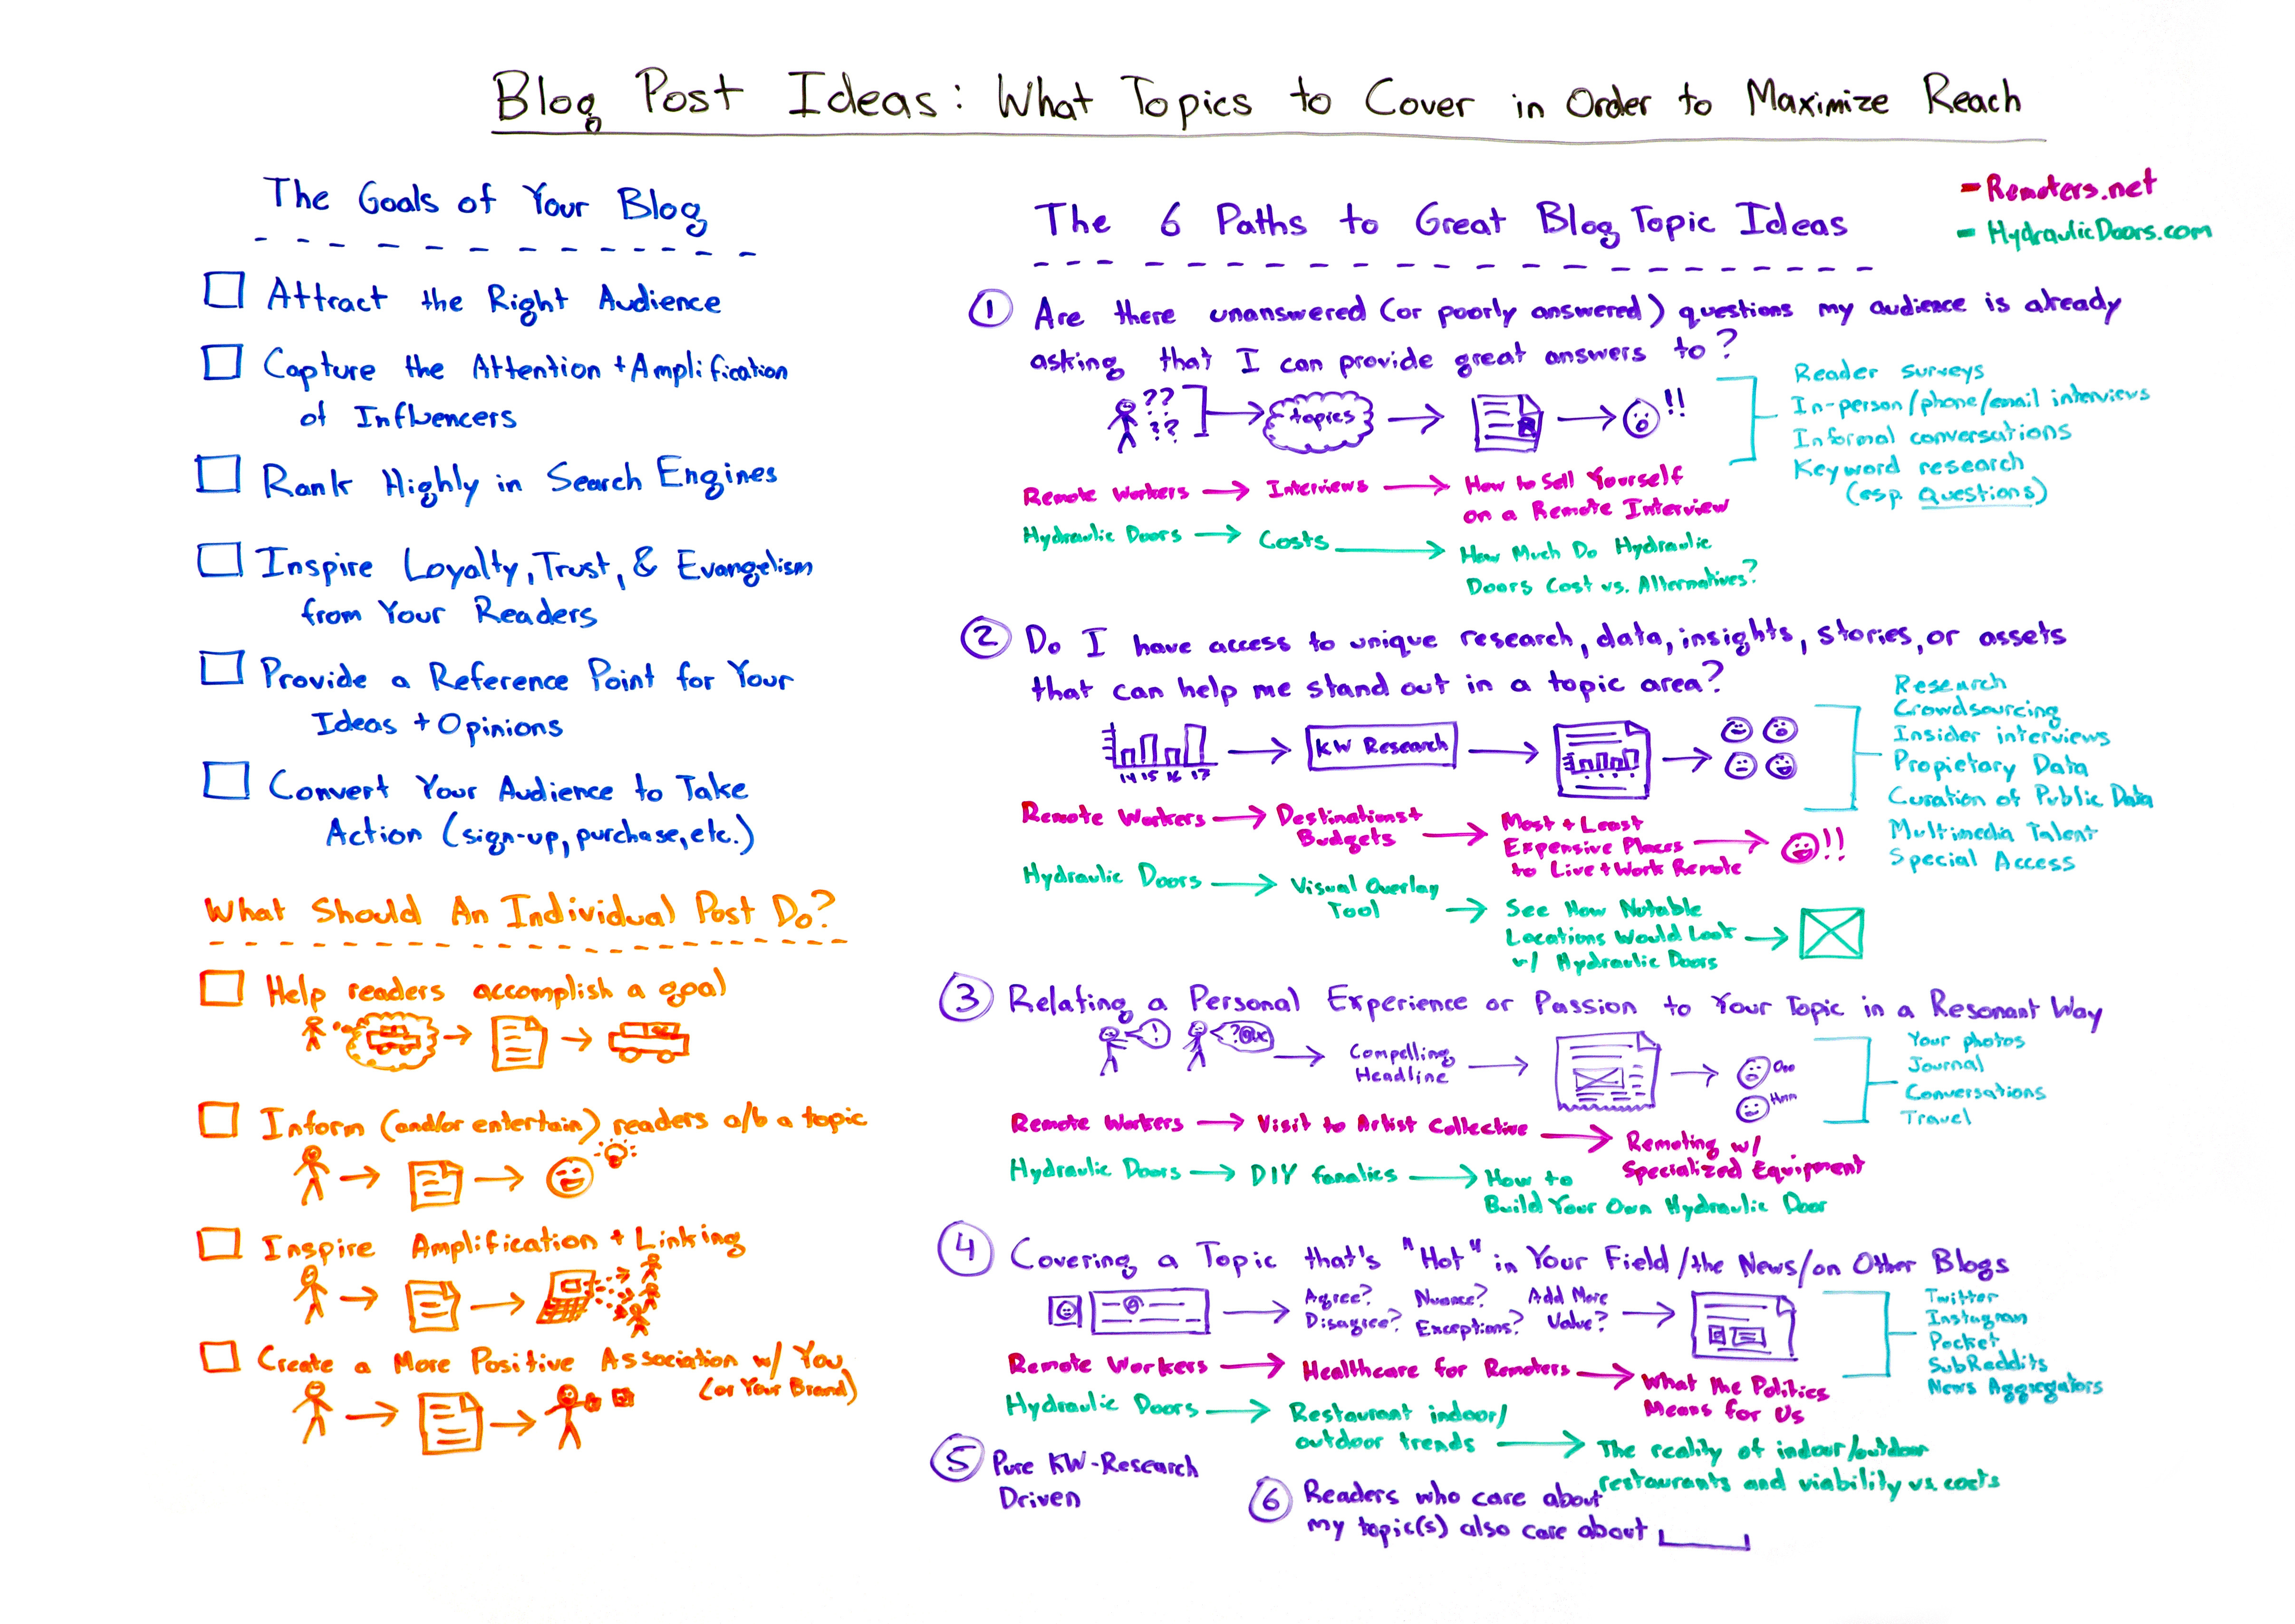 Blog Post Ideas: What Topics to Cover in Order to Maximize Reach
The Goals of Your Blog
Attract the Right Audience
Capture the Attention + Amplification
of Influencers
Rank Highly in Search Engines
Inspire Loyalty, Trust, & Evangelism
from Your Readers
Provide a Reference Point for Your
Ideas + Opinions
Convert Your Audience to Take
Action (sign-up, purchase, etc.)
What Should An Individual Post Do?
Help readers accomplish a goal
Inform (and/or entertain) readers a/b a topic
Inspire Amplification + Linking
Create a More Positive Association w/ You
(or Your Brand)
- Remoters.net
- HydraulicDoors.com
The 6 Paths to Great Blog Topic Ideas
1 Are there unanswered (or poorly answered) questions my audience is already
asking that I can provide great answers to?
??
??
topics
!!
Reader surveys
In-person/phone/email interviews
Informal conversations
Keyword research
(esp. questions)
Remote Workers → Interviews → How to Sell Yourself
on a Remote Interview
Hydraulic Doors → Costs → How Much Do Hydraulic
Doors Cost vs. Alternatives?
2 Do I have access to unique research, data, insights, stories, or assets
that can help me stand out in a topic area?
14 15 16 17
KW Research
Research
Crowdsourcing
Insider interviews
Propietary Data
Curation of Public Data
Multimedia Talent
Special Access
Remote Workers → Destinations +
Budgets → Most + Least
Expensive Places
to Live + Work Remote
!!
Hydraulic Doors → Visual Overlay
Tool → See How Notable
Locations Would Look
w/ Hydraulic Doors
3 Relating a Personal Experience or Passion to Your Topic in a Resonant Way
!
Compelling
Headline
Ooo
Hmm
Your photos
Journal
Conversations
Travel
Remote Workers → Visit to Artist Collective → Remoting w/
Specialized Equipment
Hydraulic Doors → DIY fanatics → How to
Build Your Own Hydraulic Door
4 Covering a Topic that's "Hot" in Your Field/the News/on Other Blogs
Agree?
Disagree?
Nuance?
Exceptions?
Add More
Value?
Twitter
Instagram
Pocket
SubReddits
News Aggregators
Remote Workers → Healthcare for Remoters → What the Politics
Means for Us
Hydraulic Doors → Restaurant indoor/
outdoor trends → The reality of indoor/outdoor
restaurants and viability vs. costs
5 Pure KW-Research
Driven
6 Readers who care about
my topic(s) also care about